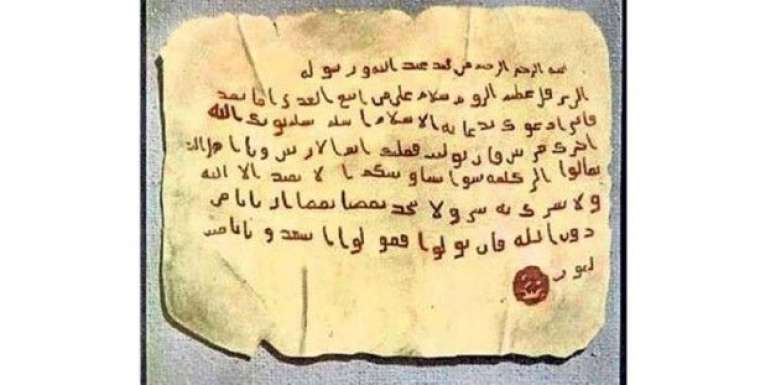 بسم الرحمن الرحيم من محمد عبد الله ورسوله
الى هرقل عظيم الروم سلام على من اتبع الهدى اما بعد
فاني ادعوك بدعاية الاسلام اسلم تسلم يوتك الله
اجرك مرتين فان توليت فعليك اثم الاريسين ويا اهل
تعالوا الى كلمة سوا بيننا وبينكم الا نعبد الا الله
ولا نشرك به ولا يتخذ بعضنا بعضا اربابا من
دون الله فان تولوا فقولوا اشهدوا بانا مس
لمون